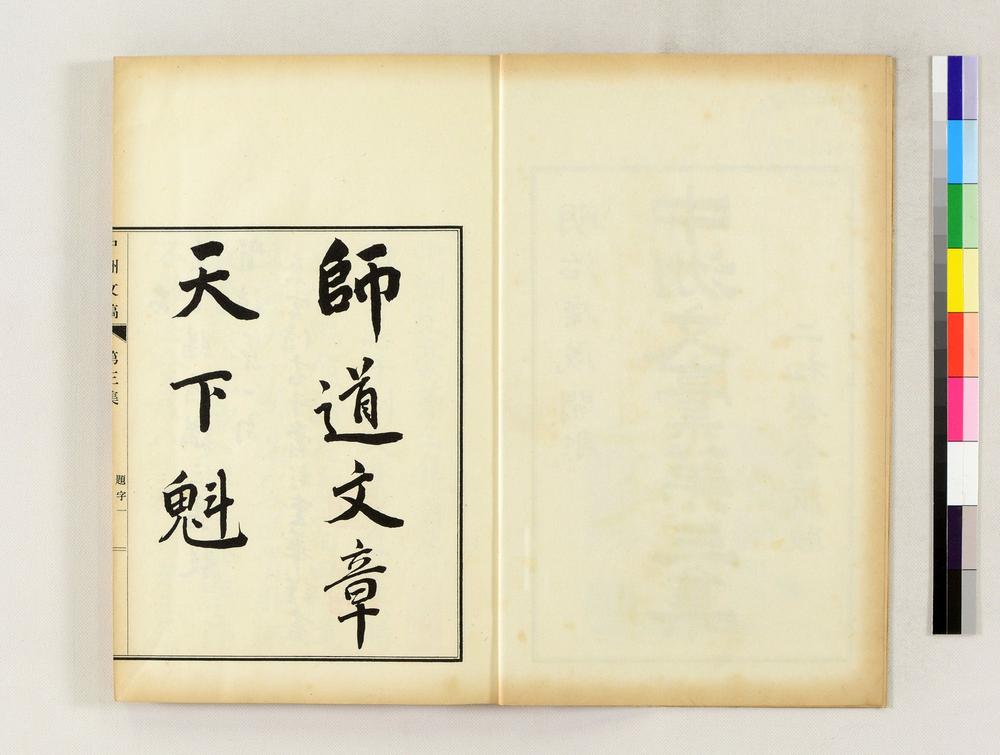 師道文章
天下魁
中洲文稿
第三集
題字一